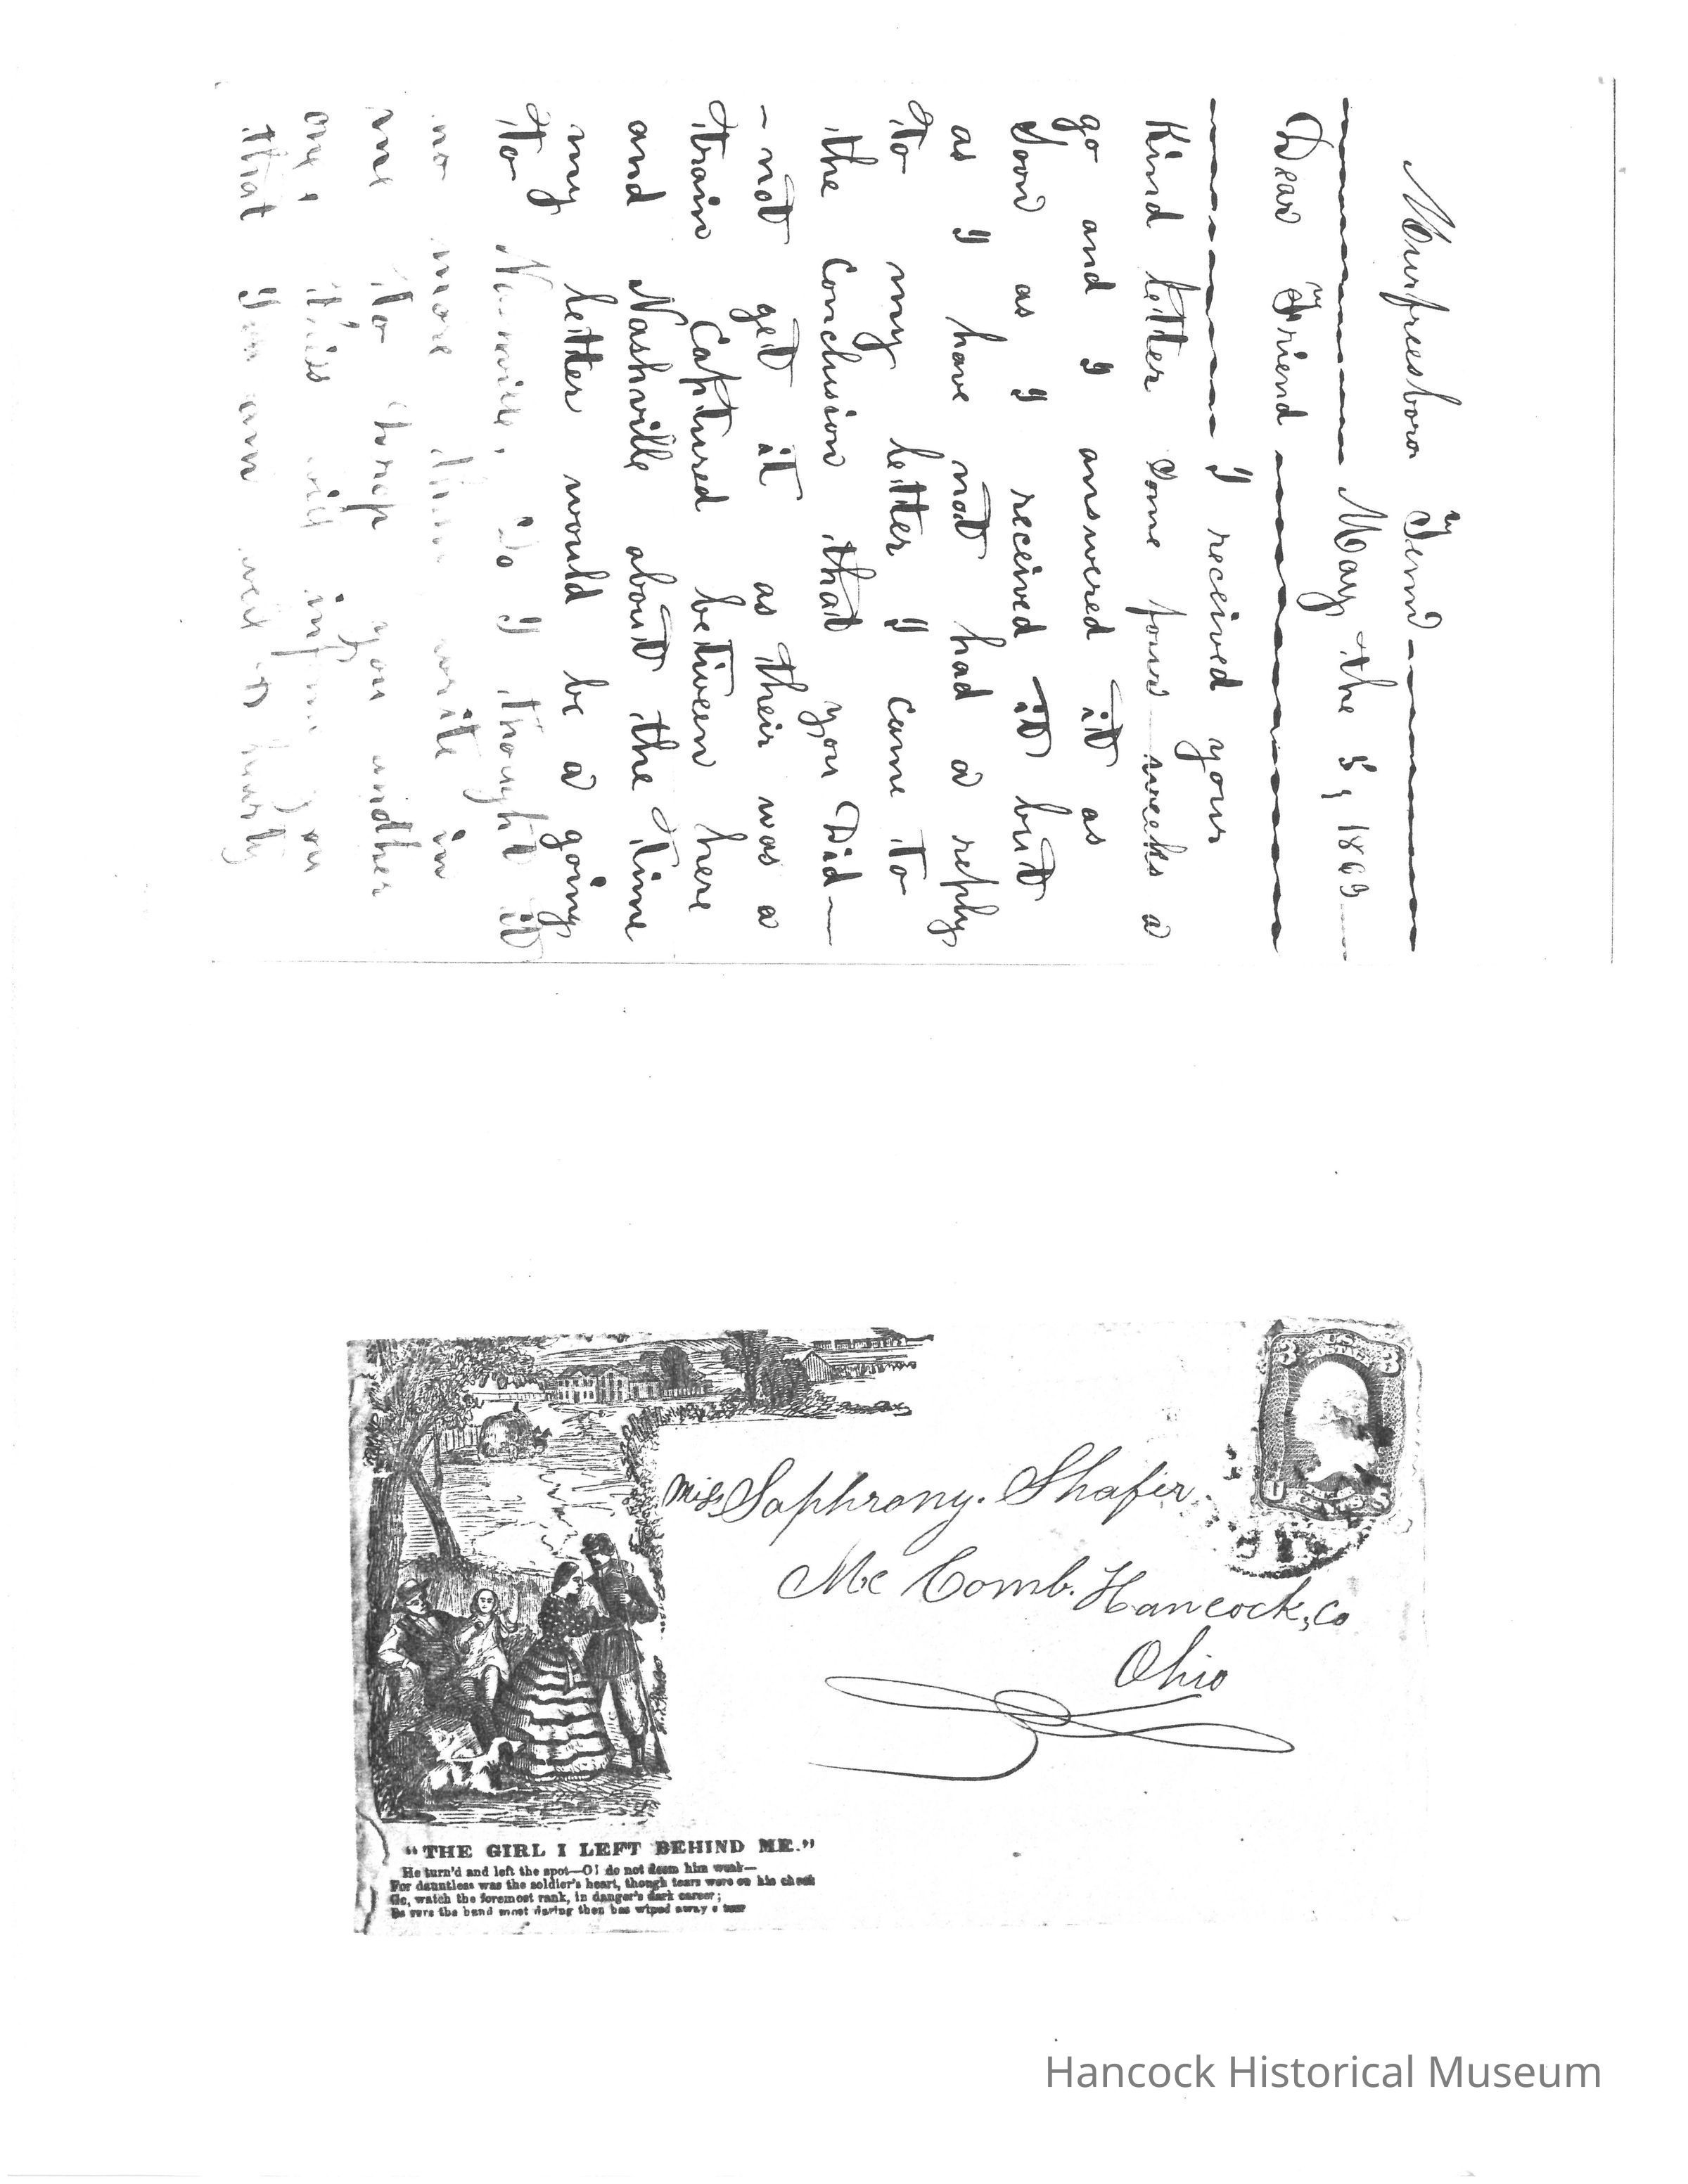 Murfreesboro Tenn
May the 5, 1863
Dear Friend
I received your
Kind letter Some four weeks a
go and I answered it as
Soon as I received it but
as I have not had a reply
to my letter I came to
the Conclusion that you Did
not get it as their was a
train Captured between here
and Nashville about the time
my letter would be a going
to So I thought it
no more then write in
me to drop you another
one, this will inform you
that I am well &
Miss Saphrony. Shafer.
Mc Comb. Hancock, Co
Ohio
3 U.S. 3
"THE GIRL I LEFT BEHIND ME."
He turn'd and left the spot—O! do not deem him weak—
For dauntless was the soldier's heart, though tears were on his cheek
Go, watch the foremost rank, in danger's dark career;
Be sure the hand most daring then has wiped away a tear
Hancock Historical Museum